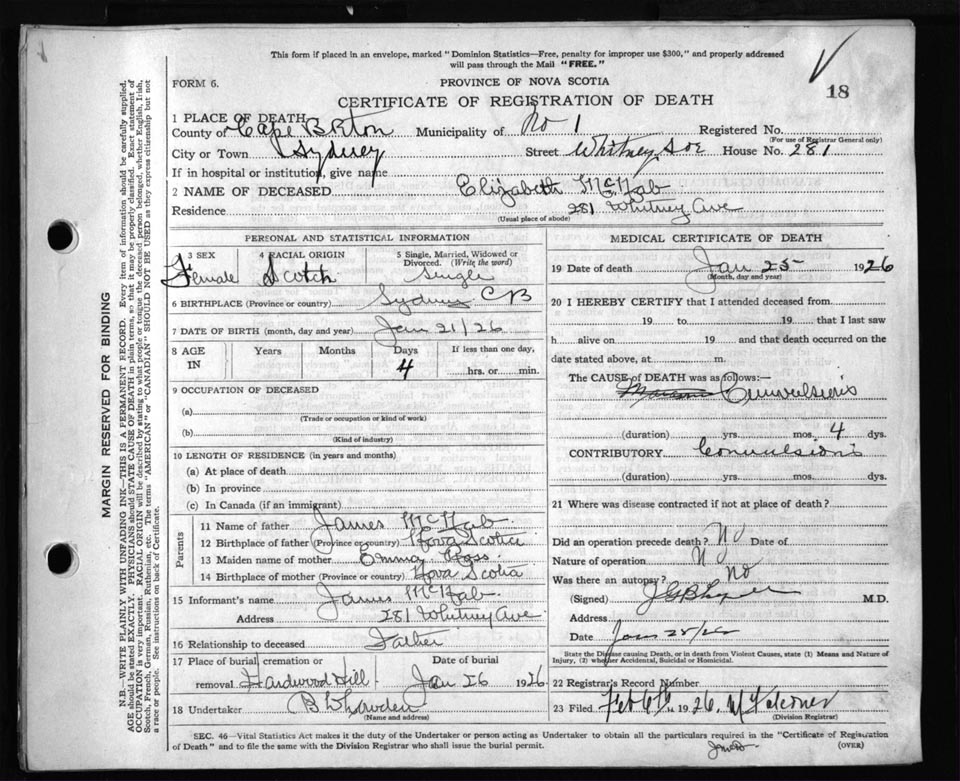 This form if placed in an envelope, marked "Dominion Statistics—Free, penalty for improper use $300," and properly addressed
will pass through the Mail "FREE."
FORM 6.
PROVINCE OF NOVA SCOTIA
18
CERTIFICATE OF REGISTRATION OF DEATH
1 PLACE OF DEATH
County of Cape Breton Municipality of No 1 Registered No.
(For use of Registrar General only)
City or Town Sydney Street Whitney Ave House No. 281
If in hospital or institution, give name
2 NAME OF DECEASED Elizabeth McNab
Residence 281 Whitney Ave
(Usual place of abode)
PERSONAL AND STATISTICAL INFORMATION
3 SEX 4 RACIAL ORIGIN 5 Single, Married, Widowed or Divorced. (Write the word)
Female Scotch Single
6 BIRTHPLACE (Province or country) Sydney C B
7 DATE OF BIRTH (month, day and year) Jan 21/26
8 AGE IN Years Months Days If less than one day,
4 hrs. or min.
9 OCCUPATION OF DECEASED
(a)
(Trade or occupation or kind of work)
(b)
(Kind of industry)
10 LENGTH OF RESIDENCE (in years and months)
(a) At place of death
(b) In province
(c) In Canada (if an immigrant)
Parents
11 Name of father James McNab
12 Birthplace of father (Province or country) Nova Scotia
13 Maiden name of mother Emma Ross
14 Birthplace of mother (Province or country) Nova Scotia
15 Informant's name James McNab
Address 281 Whitney Ave
16 Relationship to deceased Father
17 Place of burial, cremation or Date of burial
removal Hardwood Hill Jan 26 1926
18 Undertaker
(Name and address)
MEDICAL CERTIFICATE OF DEATH
19 Date of death Jan 25 1926
(Month, day and year)
20 I HEREBY CERTIFY that I attended deceased from
19 to 19 that I last saw
h alive on 19 and that death occurred on the
date stated above, at m.
The CAUSE of DEATH was as follows:—
Convulsions
(duration) yrs. mos. 4 dys.
CONTRIBUTORY Convulsions
(duration) yrs. mos. dys.
21 Where was disease contracted if not at place of death?
Did an operation precede death? No Date of
Nature of operation No
Was there an autopsy? No
(Signed) M.D.
Address
Date Jan 25/26
State the Disease causing Death, or in death from Violent Causes, state (1) Means and Nature of
Injury, (2) whether Accidental, Suicidal or Homicidal.
22 Registrar's Record Number
23 Filed Feb 6th 1926. Falconer
(Division Registrar)
SEC. 46—Vital Statistics Act makes it the duty of the Undertaker or person acting as Undertaker to obtain all the particulars required in the "Certificate of Registration
of Death" and to file the same with the Division Registrar who shall issue the burial permit.
(OVER)
MARGIN RESERVED FOR BINDING
N.B.—WRITE PLAINLY WITH UNFADING INK—THIS IS A PERMANENT RECORD. Every item of information should be carefully supplied.
AGE should be stated EXACTLY. PHYSICIANS should STATE CAUSE OF DEATH in plain terms, so that it may be properly classified. Exact statement of
OCCUPATION is very important. RACIAL ORIGIN will be described by stating to what people or tongue the deceased person belonged, whether English, Irish,
Scotch, French, German, Russian, Ruthenian, etc. The terms "AMERICAN" or "CANADIAN" SHOULD NOT BE USED as they express citizenship but not
a race or people. See instructions on back of Certificate.